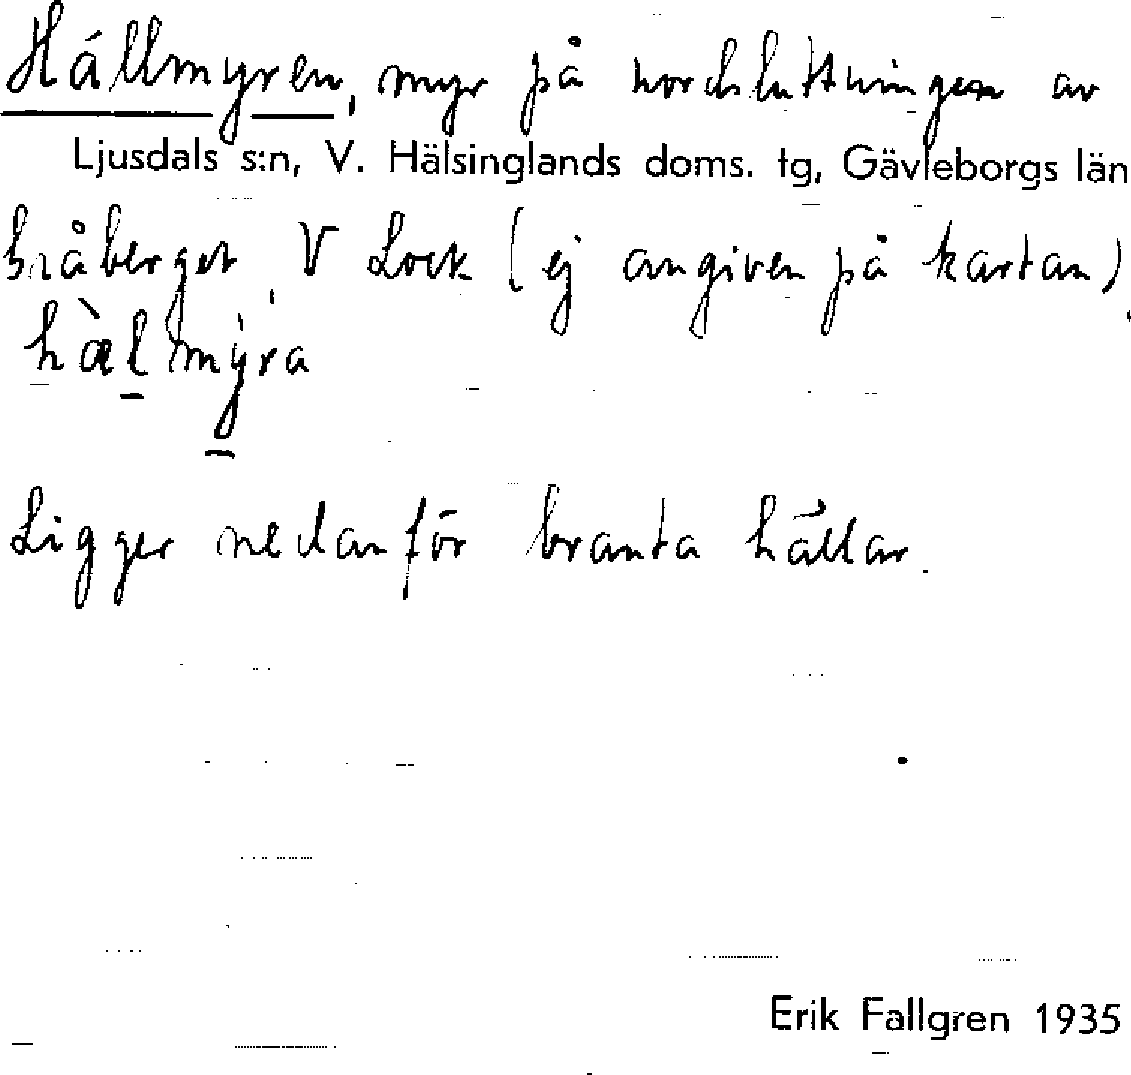 Hällmyren, myr på nordsluttningen av
Ljusdals s:n, V. Hälsinglands doms. tg, Gävleborgs län
Snåberget, V Lock (ej angiven på kartan).
hæ̀lmýra
Ligger nedanför branta hällar.
Erik Fallgren 1935